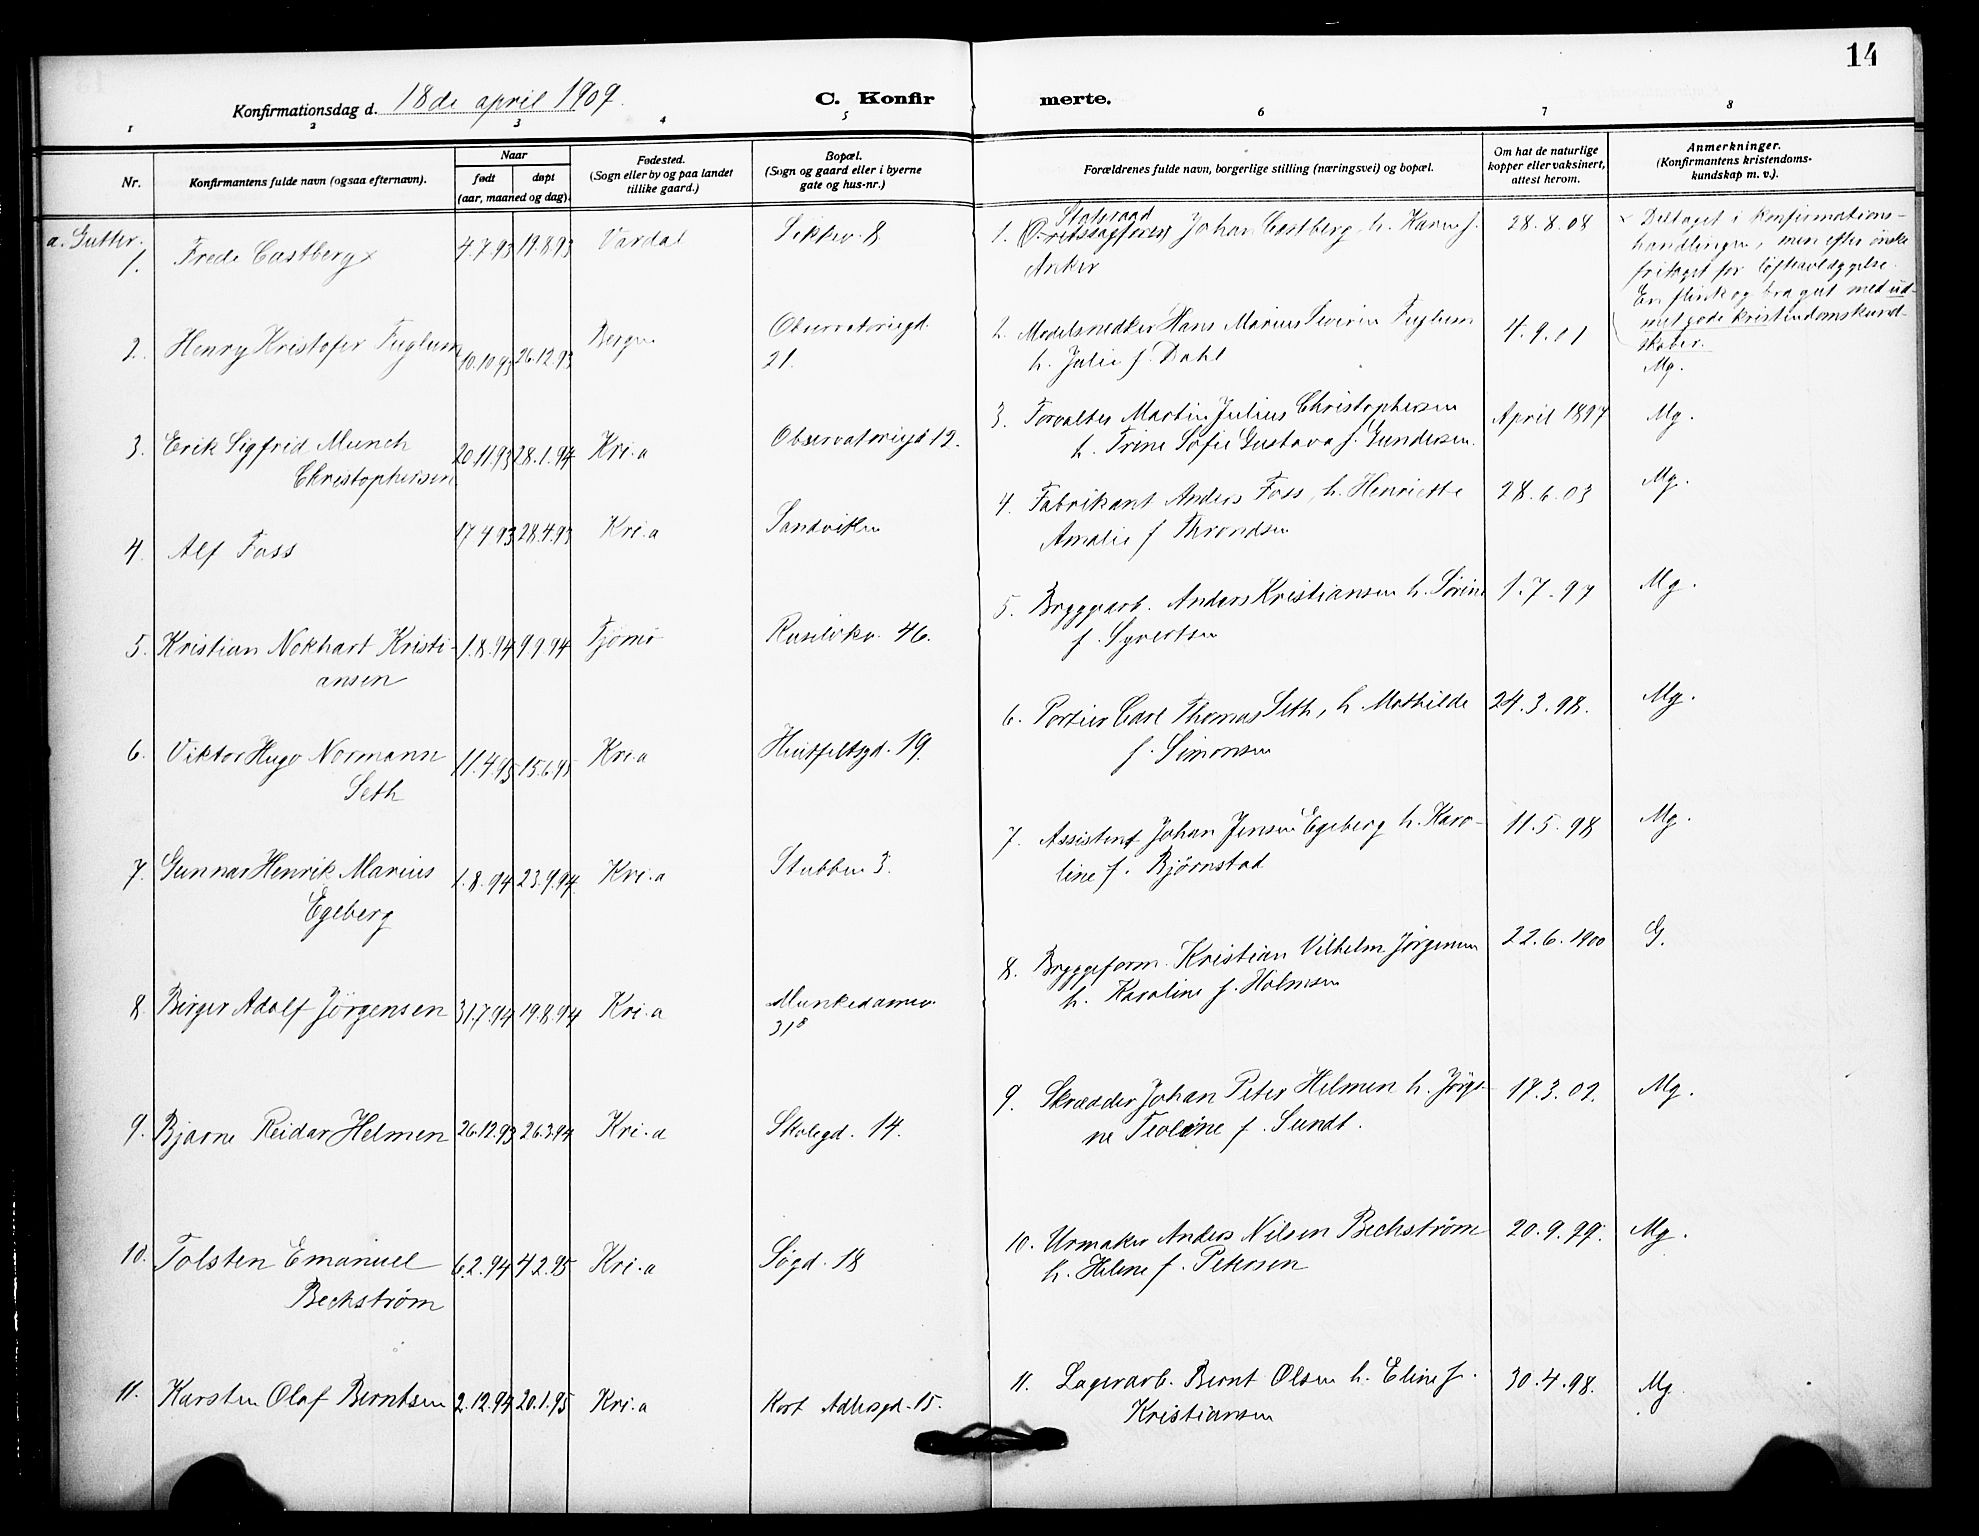 14
Konfirmationsdag d. 18de april 1909.
C. Konfirmerte.
1 2 3 4 5 6 7 8
Nr.
Konfirmantens fulde navn (ogsaa efternavn).
Naar
født
døpt
(aar, maaned og dag).
Fødested.
(Sogn eller by og paa landet
tillike gaard.)
Bopæl.
(Sogn og gaard eller i byerne
gate og hus-nr.)
Forældrenes fulde navn, borgerlige stilling (næringsvei) og bopæl.
Om hat de naturlige
kopper eller vaksinert,
attest herom.
Anmerkninger.
(Konfirmantens kristendoms-
kundskap m. v.).
a. Gutter.
1. Frede Castberg x 4.7.93 19.8.93 Vardal 8
1. Statsraad
Ø.retssagfører Johan Castberg, h. Karen f.
Anker
28.8.08
x Deltaget i konfirmations-
handlingen, men efter ønske
fritaget for løfteavlæggelse.
En flink og bra gut med ud-
met gode kristendomskund-
skaber.
2. Henry Kristofer Fuglum 10.10.93 26.12.93 Bergen Observatoriegd.
21.
2. Modelsnedker Hans Marius Severin Fuglum
h. Julie f. Dahl
4.9.01 Mg.
3. Erik Sigfrid Munch
Christophersen
20.11.93 28.1.94 Kri.a Observatoriegd 12.
3. Forvalter Martin Julius Christophersen
h. Trine Sofie Gustava f. Gundersen.
April 1897 Mg.
4. Alf Foss 17.4.93 28.4.93 Kri.a Sandviken
4. Fabrikant Anders Foss, h. Henriette
Amalie f Throndsen
28.6.03 Mg.
5. Kristian Nokhart Kristi-
ansen
1.8.94 9.9.94 Tjømø Ruseløkv. 46.
5. Bryggearb. Anders Kristiansen h. Sørine
f. Syvertsen
1.7.97 Mg.
6. Viktor Hugo Normann
Seth
11.4.95 15.6.95 Kri.a Huitfeltsgd. 19.
6. Portier Carl Thomas Seth, h. Mathilde
f. Simonsen
24.3.98. Mg.
7. Gunnar Henrik Marius
Egeberg
1.8.94 23.9.94. Kri.a Stubben 3.
7. Assistent Johan Jensen Egeberg h. Karo-
line f. Bjørnstad
11.5.98 Mg.
8. Birger Adolf Jörgensen 31.7.94 19.8.94 Kri.a Munkedamsv.
31⁸
8. Bryggeform. Kristian Vilhelm Jörgensen
h. Karoline f. Holmsen
22.6.1900 G.
9. Bjarne Reidar Helmen 26.12.93 26.3.94 Kri.a Skolegd. 14.
9. Skrædder Johan Peter Helmen h. Jörgi-
ne Teoline f. Sundt.
17.3.02. Mg.
10. Tolsten Emanuel
Bechstrøm
6.2.94 4.2.95 Kri.a Søgd. 18
10. Urmaker Anders Nilsen Bechstrøm
h. Helene f. Petersen
20.9.99. Mg.
11. Karsten Olaf Berntsen 2.12.94 20.1.95 Kri.a Kort Adlersgd. 15.
11. Lagerarb. Bernt Olsen h. Eline f.
Kristiansen
30.4.98. Mg.